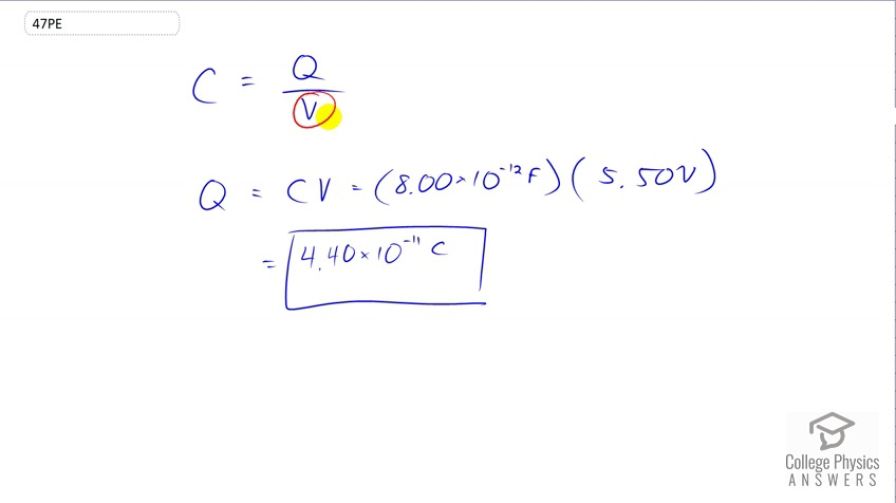 47PE
C = Q / V
Q = CV = (8.00 × 10⁻¹² F) (5.50V)
= 4.40 × 10⁻¹¹ C
College Physics
ANSWERS